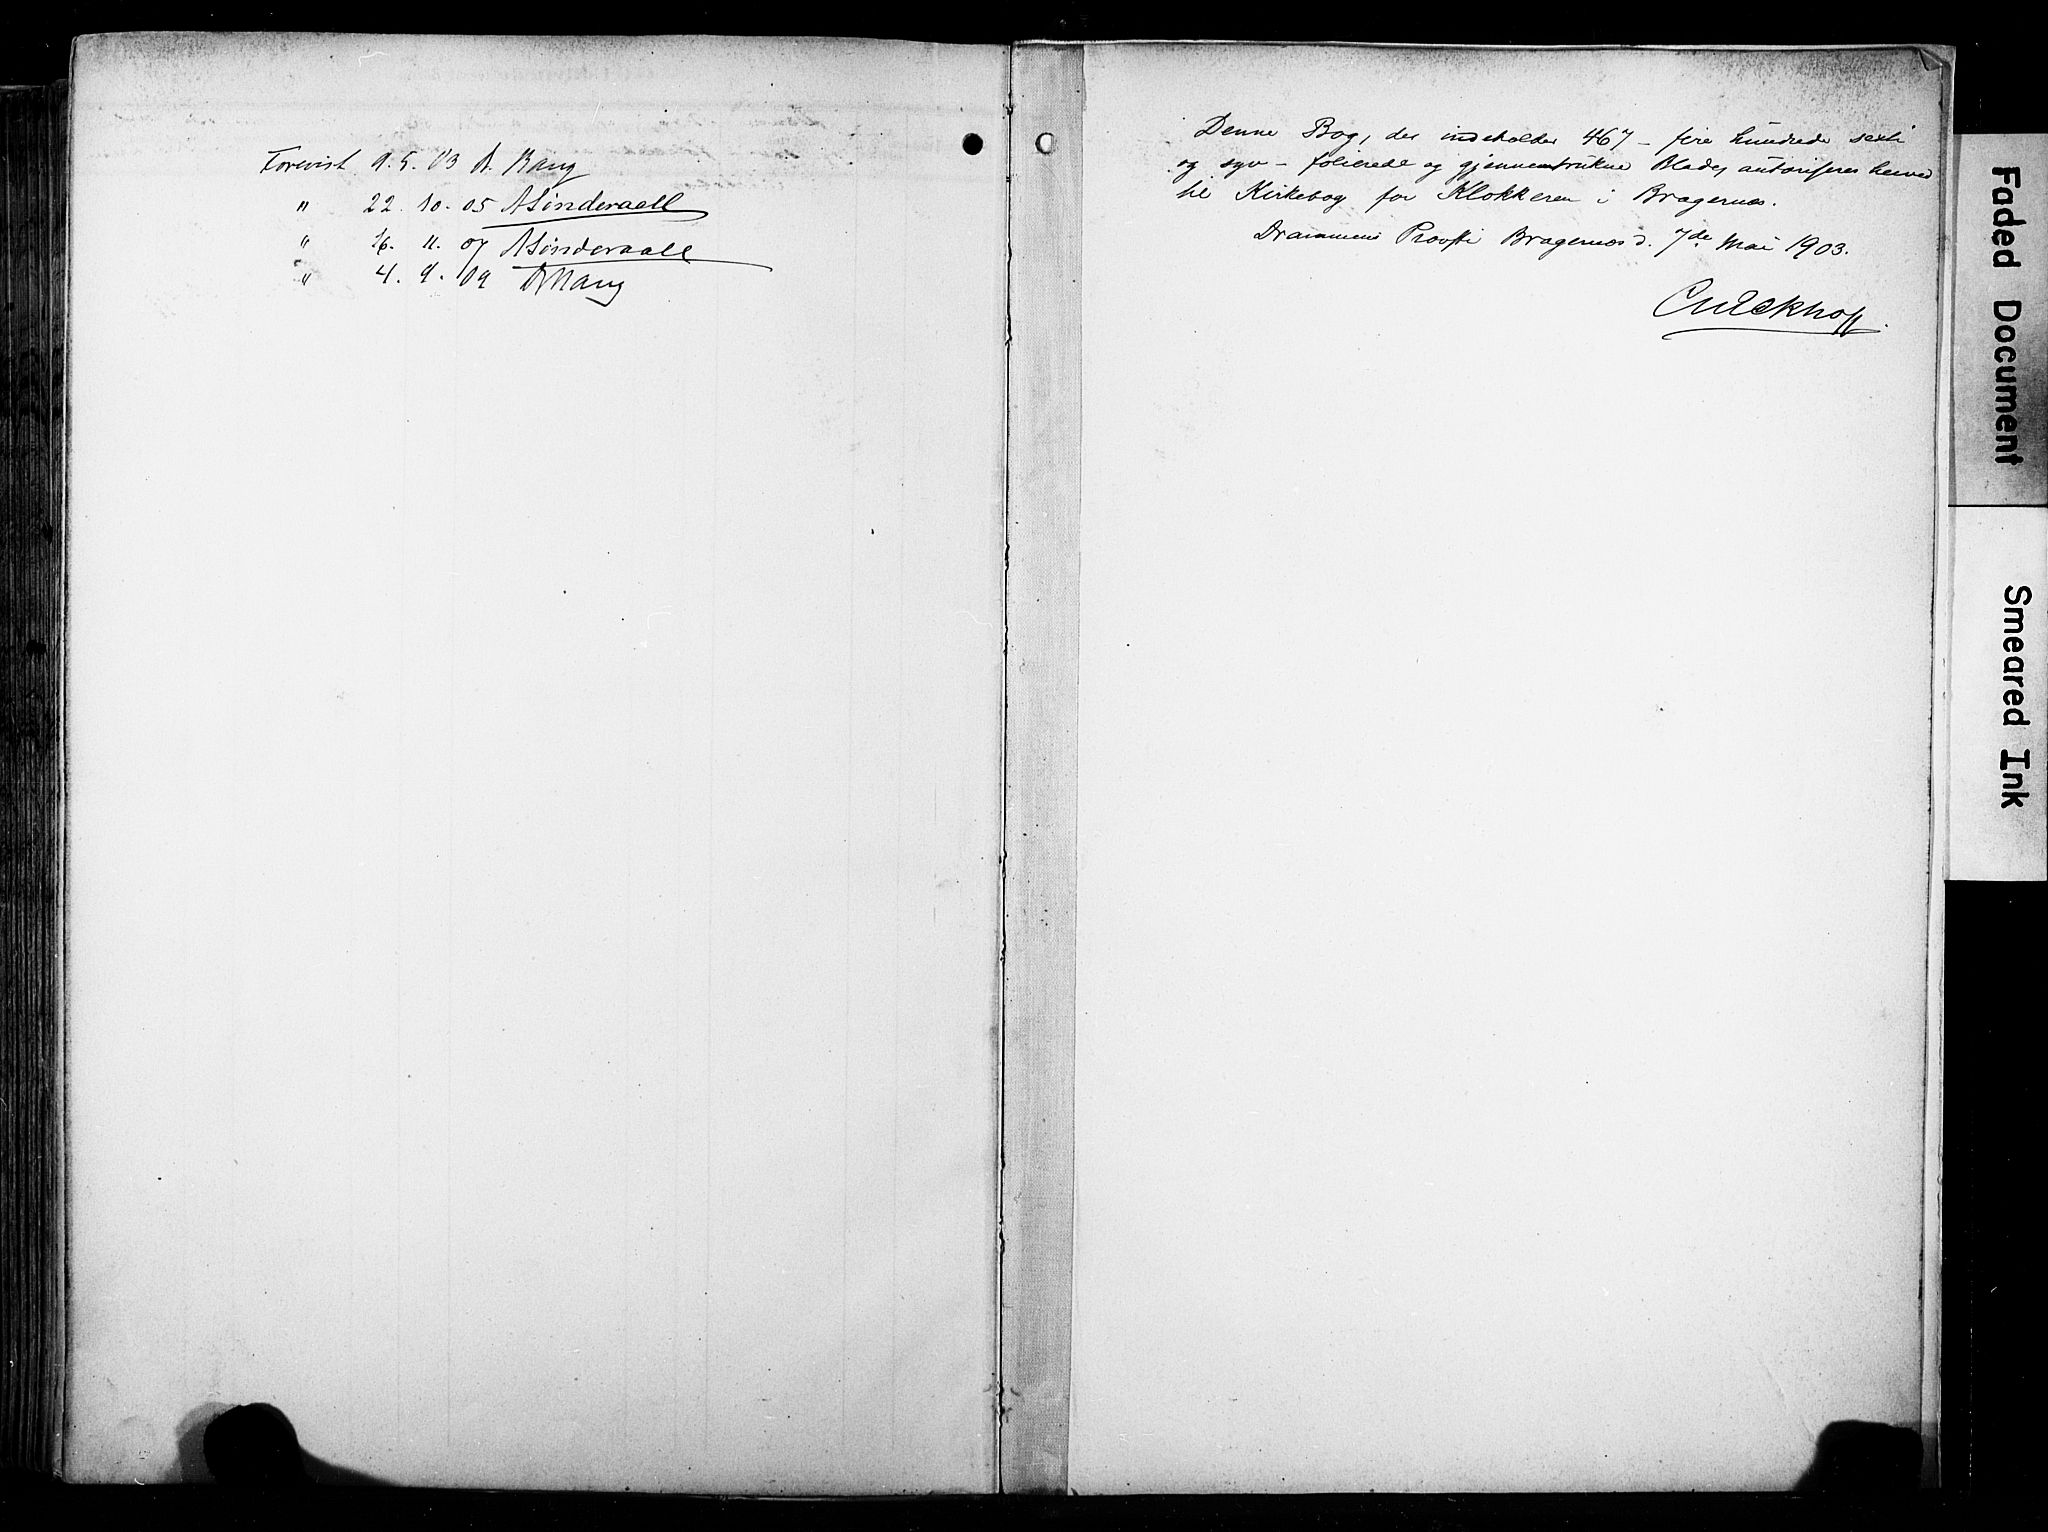 Forevist 9.5.03 A. Bang
" 22.10.05 A Sinderaall
" 16.11.07 A Sinderaall
" 4.9.09 A Bang
Denne Bog, der indeholder 467 – fire hundrede sexti
og syv – folierede og gjennemtrukne Blade, autoriseres herved
til Kirkebog for Klokkeren i Bragernæs.
Drammens Provsti Bragernæs d. 7de Mai 1903.
Eckhoff.
Faded Document
Smeared Ink